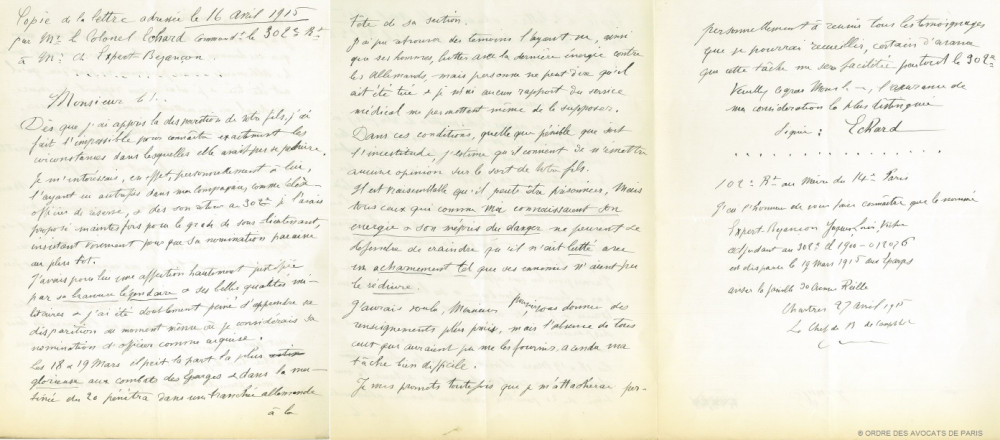 Copie de la lettre adressée le 16 avril 1915
par Mr. le Colonel Echard Command. le 302e Rt
à Mr. de Expert Besançon
Monsieur
Dès que j'ai appris la disparition de votre fils, j'ai
fait l'impossible pour connaître exactement les
circonstances dans lesquelles elle avait pu se produire.
Je m'intéressais, en effet, personnellement à lui,
l'ayant eu autrefois dans ma compagnie, comme élève
officier de réserve, & dès son retour au 302e je l'avais
proposé maintes fois pour le grade de sous lieutenant,
insistant vivement pour que sa nomination parvienne
au plus tôt.
J'avais pour lui une affection hautement justifiée
par sa bravoure légendaire & ses belles qualités mi-
litaires & j'ai été doublement peiné d'apprendre sa
disparition au moment même où je considérais sa
nomination d'officier comme acquise.
Les 18 & 19 Mars il prit la part la plus
glorieuse aux combats des Eparges & dans la ma-
tinée du 20 pénétra dans une tranchée allemande
à la
tête de sa section.
J'ai pu retrouver des témoins l'ayant vu, ainsi
que ses hommes, lutter avec la dernière énergie contre
les Allemands, mais personne ne peut dire qu'il
ait été tué & je n'ai aucun rapport du service
médical me permettant même de le supposer.
Dans ces conditions, quelque pénible que soit
l'incertitude, j'estime qu'il convient de n'émettre
aucune opinion sur le sort de votre fils.
Il est vraisemblable qu'il peut être prisonnier, Mais
tous ceux qui comme moi connaissaient son
énergie & son mépris du danger ne peuvent se
défendre de craindre qu'il n'ait lutté avec
un acharnement tel que ses ennemis n'aient pu
le réduire.
J'aurais voulu, Monsieur, pouvoir vous donner des
renseignements plus précis, mais l'absence de tous
ceux qui auraient pu me les fournir, a rendu ma
tâche bien difficile.
Je me promets toutefois que je m'attacherai per-
personnellement à réunir tous les témoignages
que je pourrai recueillir, certain d'avance
que cette tâche me sera facilitée par tout le 302e
Veuillez agréer Monsieur, l'assurance de
ma considération la plus distinguée
Signé : Echard
102e Rt au Maire du 14e Paris
J'ai l'honneur de vous faire connaître que le nommé
Expert Besançon Joseph Louis
adjudant au 302e cl 1900 - 012076
est disparu le 19 Mars 1915 aux Eparges
aviser la famille 30 avenue Reille
Chartres 27 avril 1915
Le Chef de B
© ORDRE DES AVOCATS DE PARIS